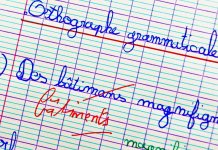 Orthographe grammaticale
Des bâtimans magnifiqu
bâtiments